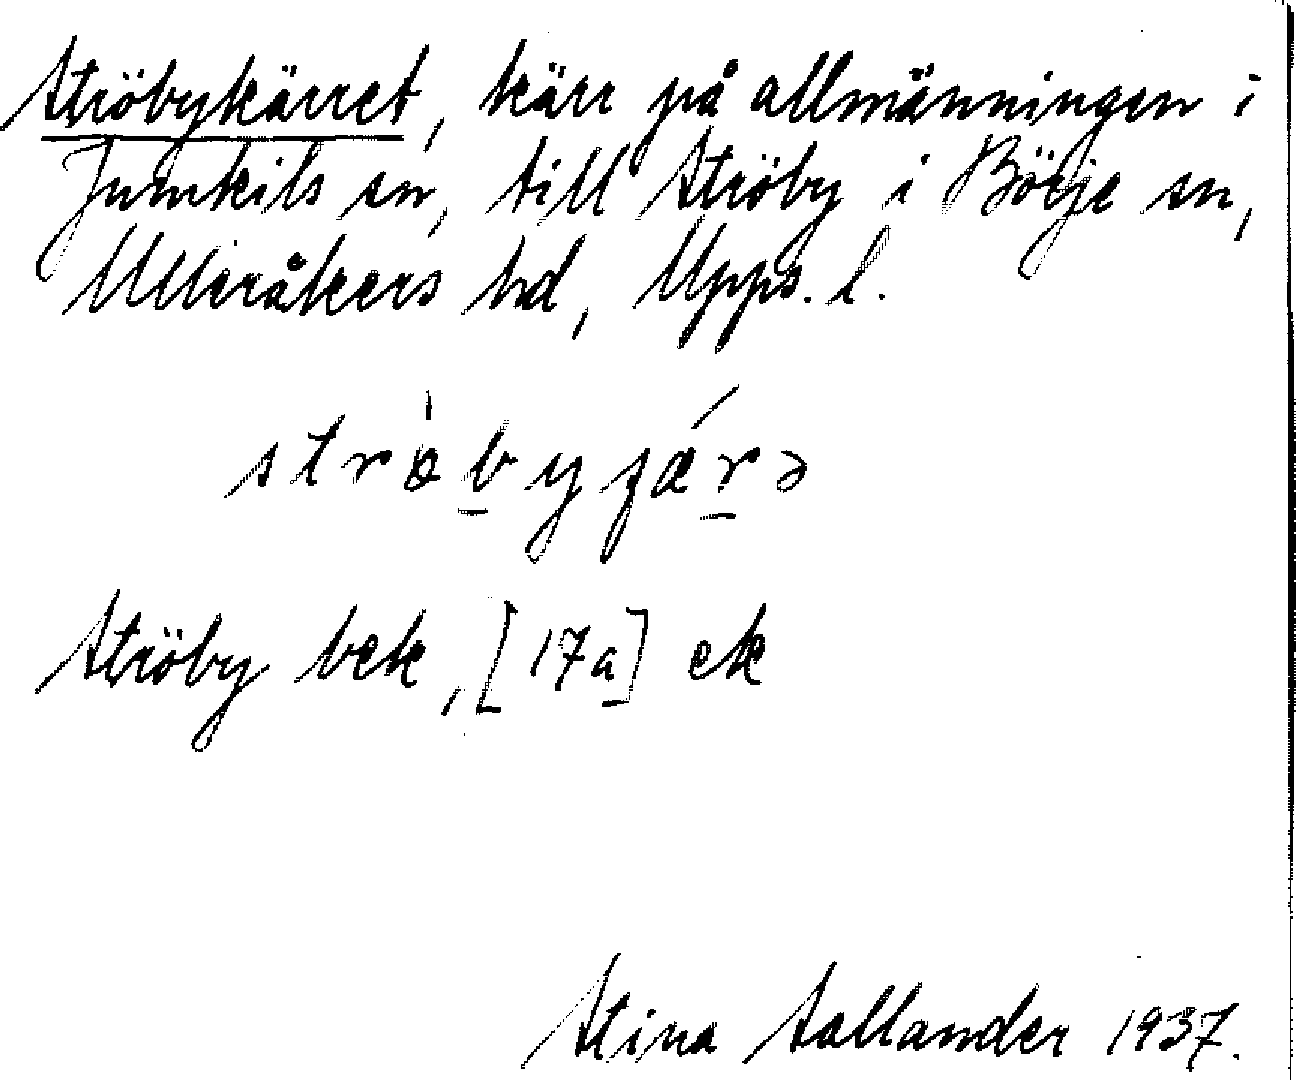 Ströbykärret, kärr på allmänningen i
Jumkils sn, till Ströby i Börje sn,
Ulleråkers hd, Upps. l.
Ströby bek, [17a] ek
Stina Sallander 1937.